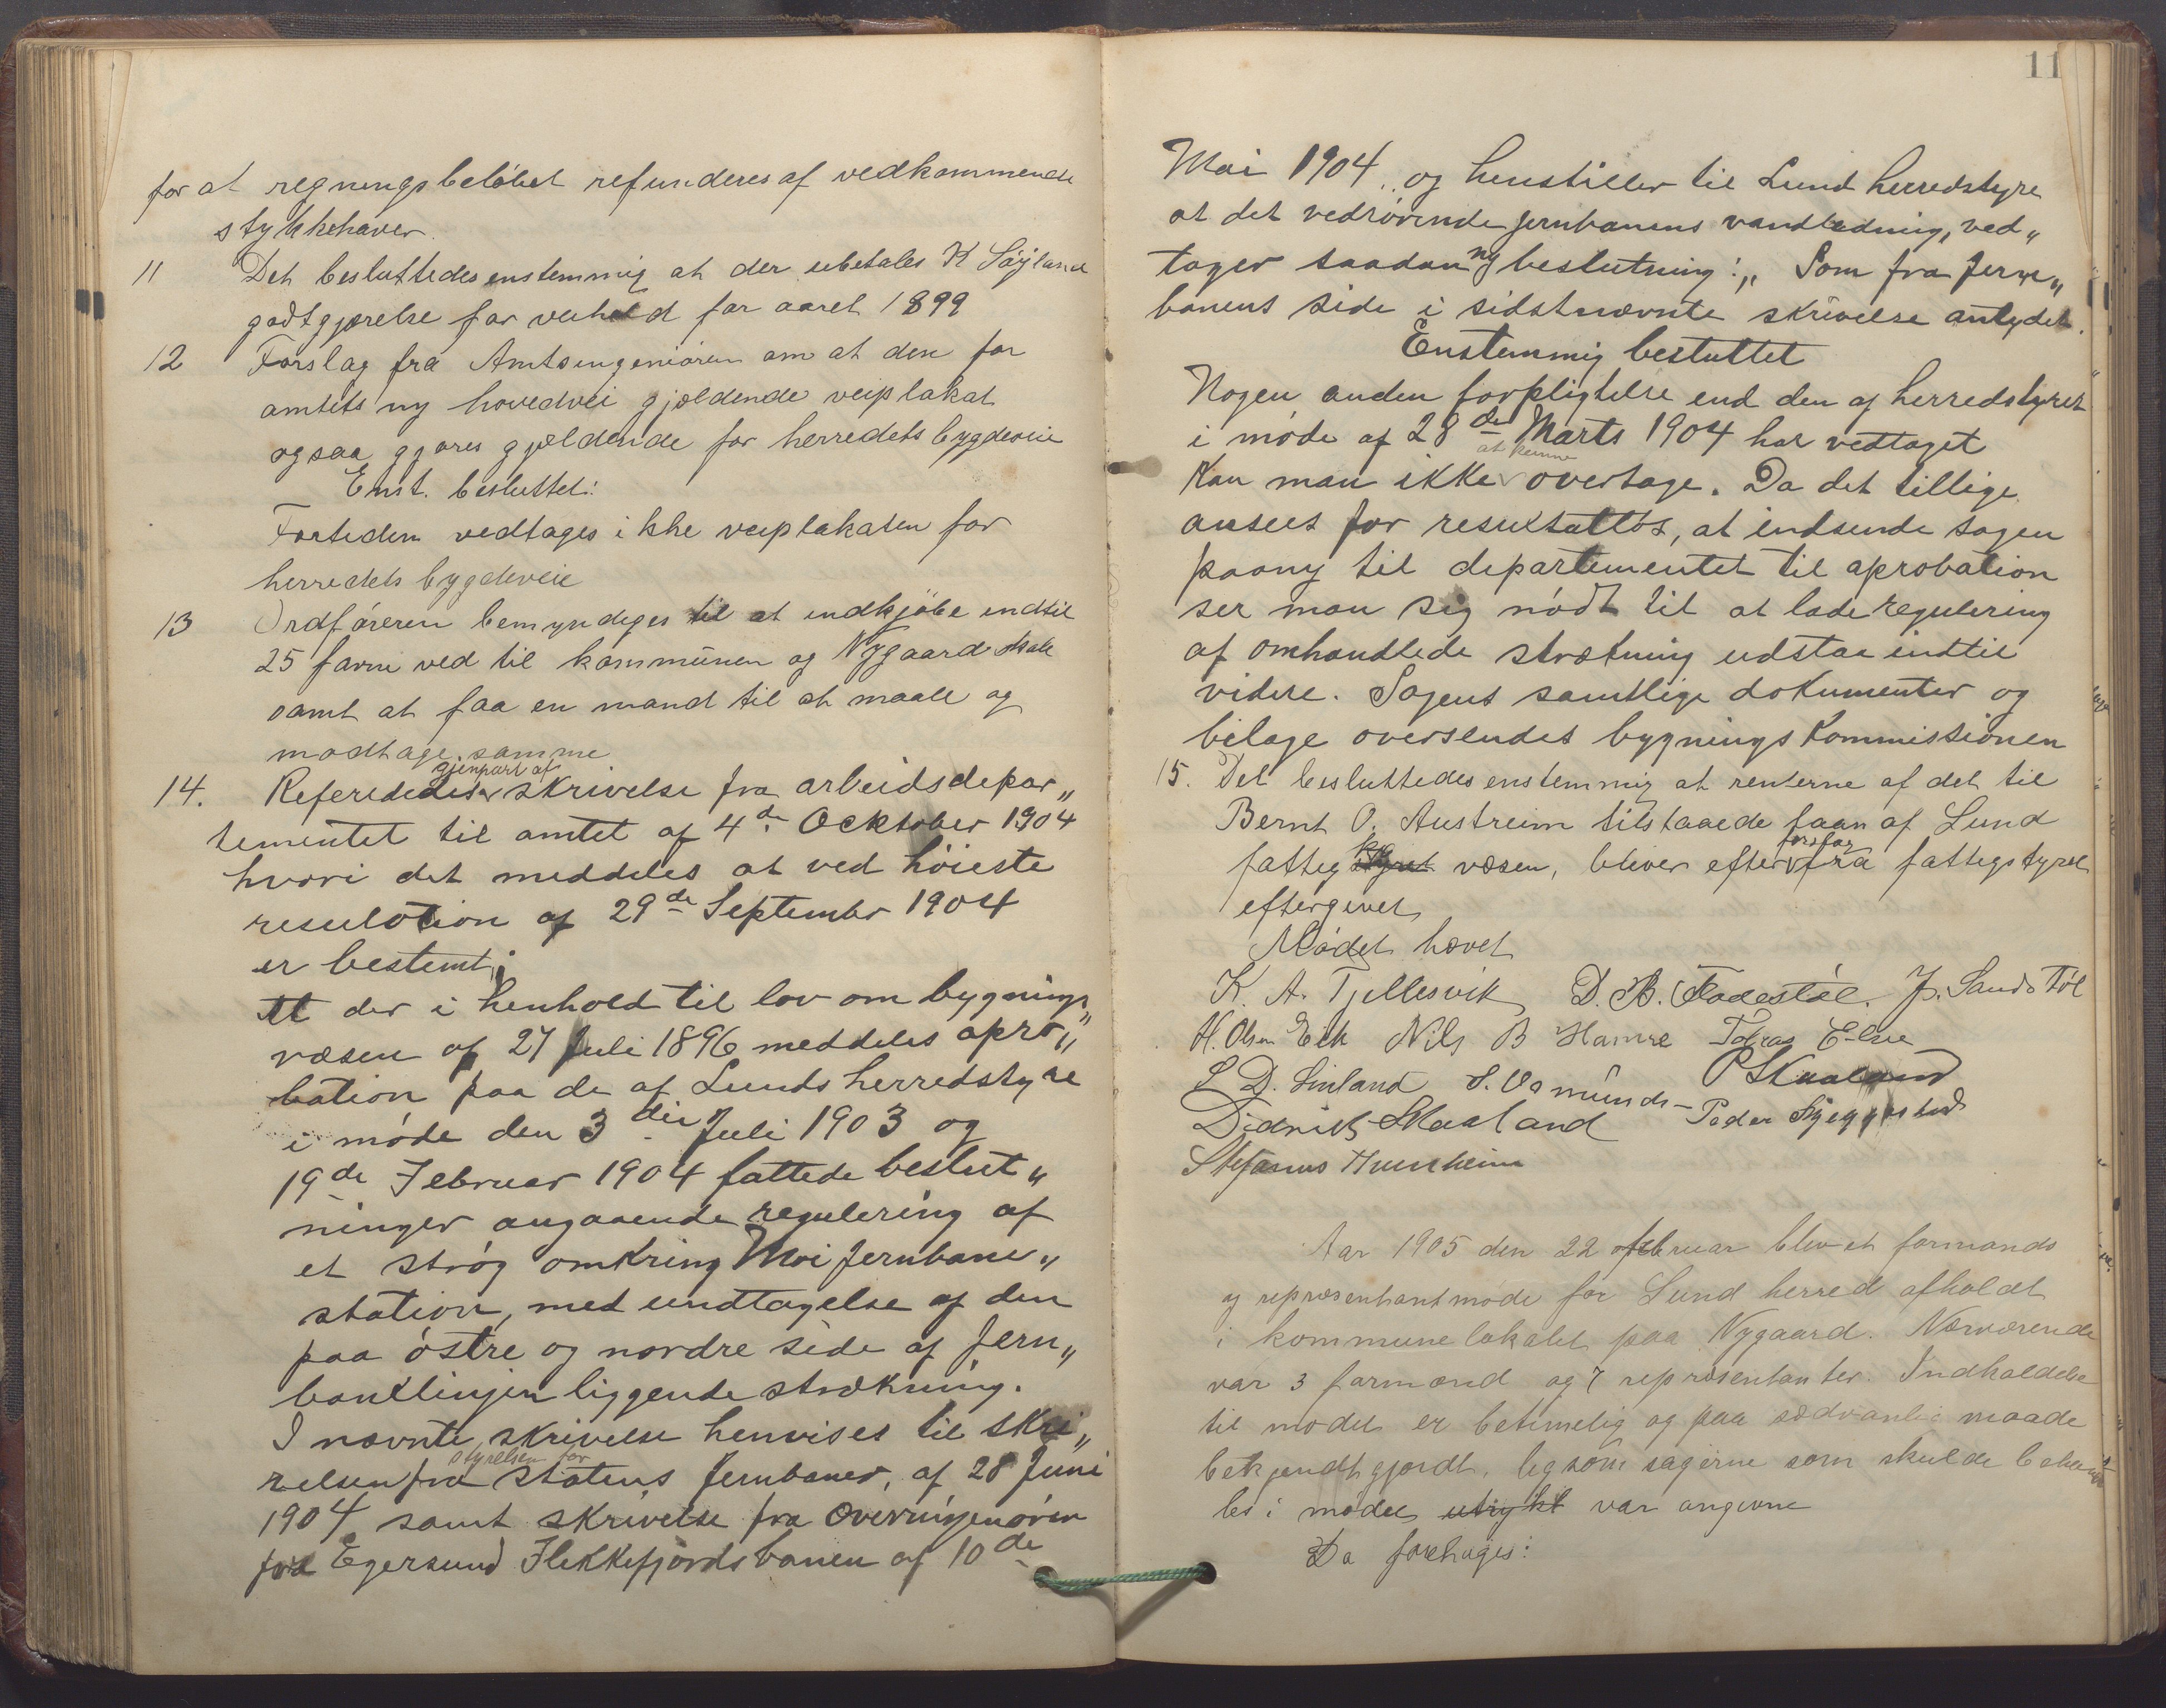 for at regningsbeløbet refunderes af vedkommende
stykkehaver.
11 Det besluttedes enstemmig at der udbetales K Søyland
godtgjørelse for veihold for aaret 1899
12 Forslag fra Amtsingeniøren om at den for
amtets ny hovedvei gjældende veiplakat
ogsaa gjøres gjældende for herredets bygdeveie
Enst. besluttet:
Fortiden vedtages ikke veiplakaten for
herredets bygdeveie
13 Ordføreren bemyndiges til at indkjøbe indtil
25 favne ved til kommunen og Nygaard skole
samt at faa en mand til at maale og
modtage samme
14. Referededes gjenpart af skrivelse fra arbeidsdepar„
tementet til amtet af 4de Ocktober 1904
hvori det meddeles at ved høieste
resulotion af 29de September 1904
er bestemt:
At der i henhold til lov om bygnings„
væsen af 27 Juli 1896 meddeles apro„
bation paa de af Lunds herredstyre
i møde den 3die Juli 1903 og
19de Februar 1904 fattede beslut„
ninger angaaende regulering af
et strøg omkring Moi Jernbane„
station, med undtagelse af den
paa østre og nordre side af Jern„
banelinjen liggende strækning.
I nævnte skrivelse henvises til skri„
velsen fra styrelsen for Statens Jernbaner, af 28 Juni
1904 samt skrivelse fra Overingeniøren
for Egersund Flekkefjordsbanen af 10de
11
Mai 1904, og henstiller til Lund herredstyre
at det vedrørende Jernbanens vandledning, ved„
tager saadan ny beslutning: „Som fra Jern„
banens side i sidstnævnte skrivelse antydet.
Enstemmig besluttet
Nogen anden forpligtelse end den af herredstyret
i møde af 28de Marts 1904 har vedtaget
kan man ikke at kunne overtage. Da det tillige
ansees for resultatløs, at indsende sagen
paany til departementet til aprobation
ser man sig nødt til at lade regulering
af omhandlede strækning udstaa indtil
videre. Sagens samtlige dokumenter og
bilage oversendes bygningskommissionen
15. Det besluttedes enstemmig at renterne af det til
Bernt O. Austreim tilstaaede laan af Lund
fattig styret væsen, bliver efter forslag fra fattigstyret
eftergivet
Mødet hævet
K. A. Tjellesvik D. B. Fladestøl. J. Sandstøl
H. Olsen Eik Nils B Hamre Tobias Eltie
S D. Surland S. Osmunds- P Skaaland
Didrik Skaaland Peder Skjeggestad
Stefanus Hunnheim
Aar 1905 den 22 februar blev et formands
og repræsentantmøde for Lund herred afholdt
i kommunelokalet paa Nygaard. Nærværende
var 3 formænd og 7 repræsentanter. Indkaldelse
til mødet er betimelig og paa sædvanlig maade
bekjendtgjordt, ligsom sagerne som skulde behand
les i mødet utrykt var angivne
Da foretoges: